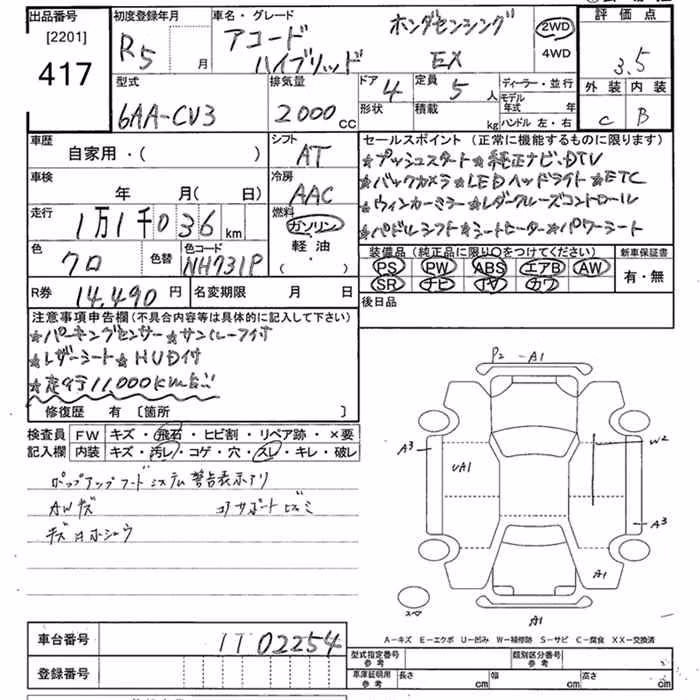 出品番号 [2201] 417
初度登録年月 R5 月
車名・グレード アコード ハイブリッド ホンダセンシング EX
2WD 4WD
評価点 3.5
外装 C 内装 B
型式 6AA-CV3
排気量 2000 CC
ドア 4 定員 5 人
形状 積載 kg
ディーラー・並行
モデル年式 年
ハンドル 左・右
車歴 自家用・( )
シフト AT
車検 年 月( 日)
冷房 AAC
走行 1万1千036 km
燃料 ガソリン・軽油・( )
色 クロ 色替 色コード NH731P
R券 14,490 円 名変期限 月 日
セールスポイント (正常に機能するものに限ります)
☆プッシュスタート☆純正ナビ、DTV
☆バックカメラ☆LEDヘッドライト☆ETC
☆ウィンカーミラー☆レダークルーズコントロール
☆パドルシフト☆シートヒーター☆パワーシート
装備品 (純正品に限り○をつけてください) 新車保証書
PS PW ABS エアB AW 有・無
SR ナビ TV カワ
後日品
注意事項申告欄(不具合内容等は具体的に記入して下さい)
☆パーキングセンサー☆サンルーフ付
☆レザーシート☆HUD付
☆走行11,000km台!!
修復歴 有 [箇所 ]
検査員記入欄
FW キズ・飛石・ヒビ割・リペア跡・×要
内装 キズ・汚レ・コゲ・穴・スレ・キレ・破レ
ポップアップフードシステム警告表示アリ
AWキズ コアサポートヒズミ
キズ小ホショウ
P2 -A1
A3 UA1 W2
A3
A1
スペ A1
A-キズ E-エクボ U-凹み W-補修跡 S-サビ C-腐食 XX-交換済
車台番号 1102254
登録番号
型式指定番号 参考 類別区分番号 参考
車庫証明用 参考 長さ cm 幅 cm 高さ cm